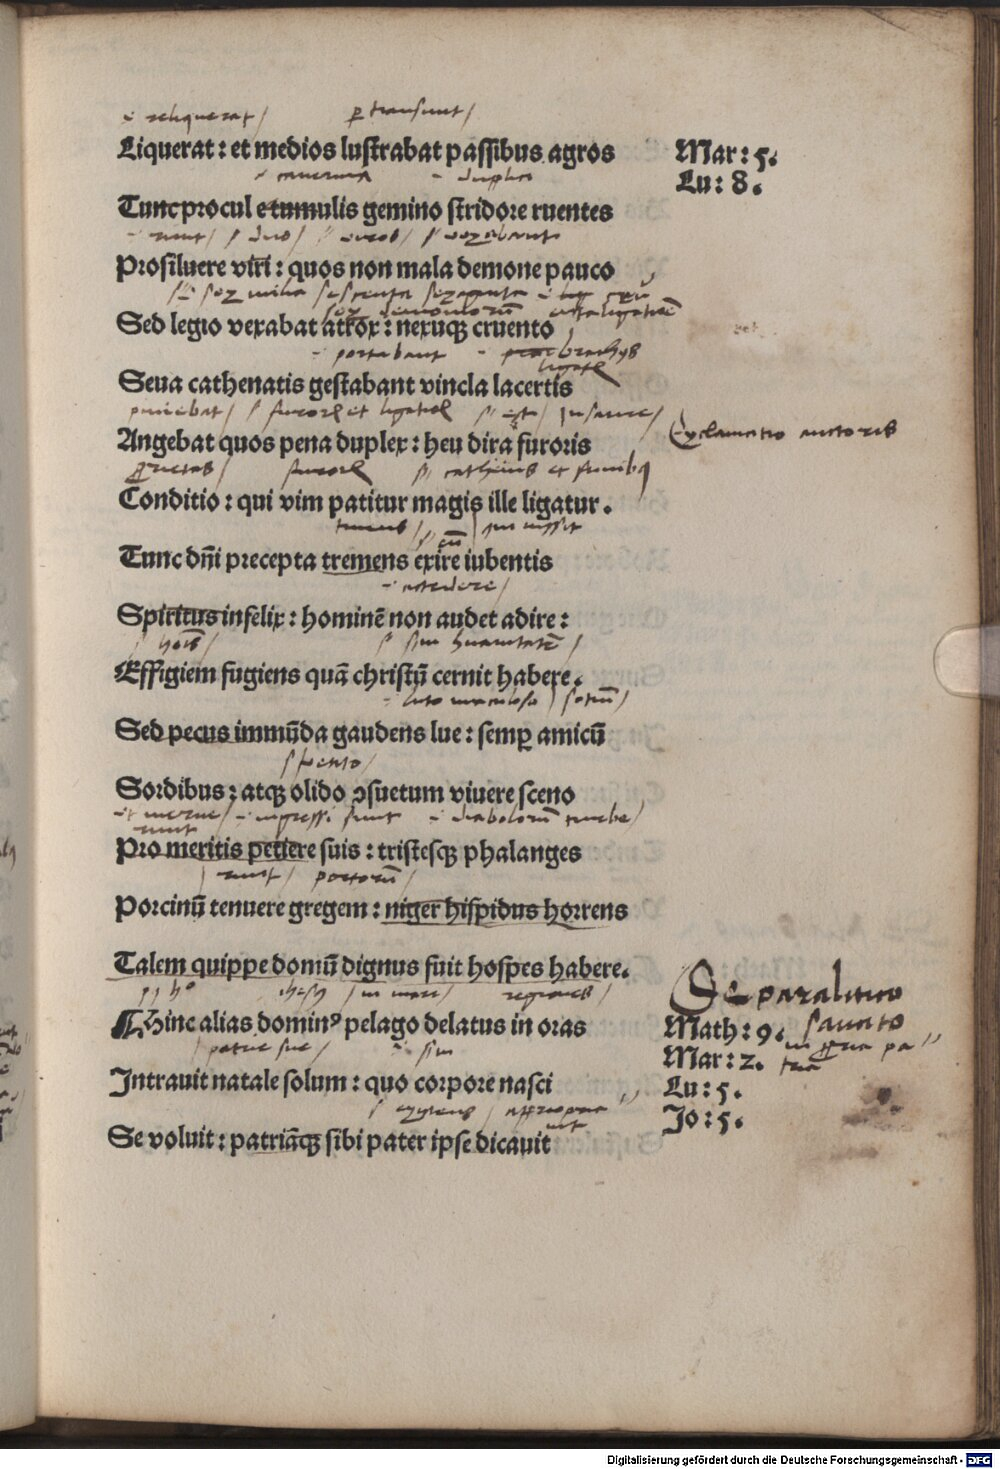 i reliquerat / ꝑtransiuit /
Liquerat : et medios lustrabat passibus agros
Mar : 5.
Lu : 8.
Tunc procul e tumulis gemino stridore ruentes
Prosiluere viri : quos non mala demone pauco
sex milia sescenta sexaginta
Sed legio vexabat atrox : nexuqꝫ cruento
portabant brachijs
Seua cathenatis gestabant vincla lacertis
Angebat quos pena duplex : heu dira furoris
Exclamatio auctoris
Conditio : qui vim patitur magis ille ligatur.
timens / qui iussit
Tunc dñi precepta tremens exire iubentis
accedere /
Spiritus infelix : hominē non audet adire :
Effigiem fugiens quā christū cernit habere.
Sed pecus immūda gaudens lue : semꝑ amicū
Sordibus : atqꝫ olido ꝯsuetum viuere sceno
ingressi sunt diabolorum
Pro meritis petiere suis : tristesqꝫ phalanges
porcorū /
Porcinū tenuere gregem : niger hispidus horrens
Talem quippe domū dignus fuit hospes habere.
De paralitico
in mare / regiones /
Hinc alias dominꝰ pelago delatus in oras
Math : 9. sanato
Mar : 2. in ꝓpria patria
Intrauit natale solum : quo corpore nasci
Lu : 5.
Jo : 5.
Se voluit : patriāqꝫ sibi pater ipse dicauit
Digitalisierung gefördert durch die Deutsche Forschungsgemeinschaft - DFG